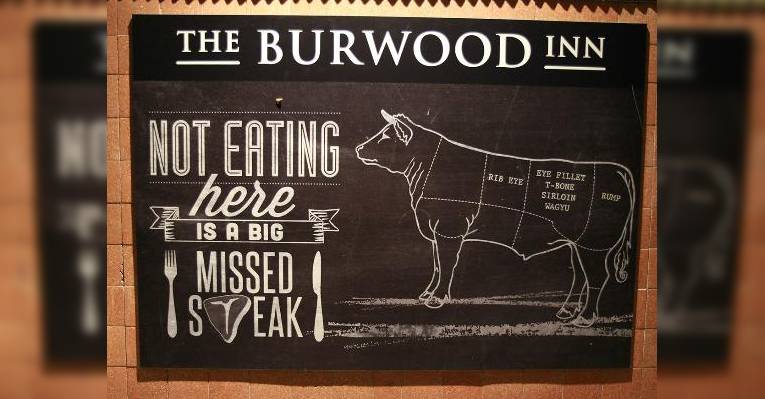 THE BURWOOD INN
NOT EATING
here
IS A BIG
MISSED
STEAK
RIB EYE
EYE FILLET
T-BONE
SIRLOIN
WAGYU
RUMP